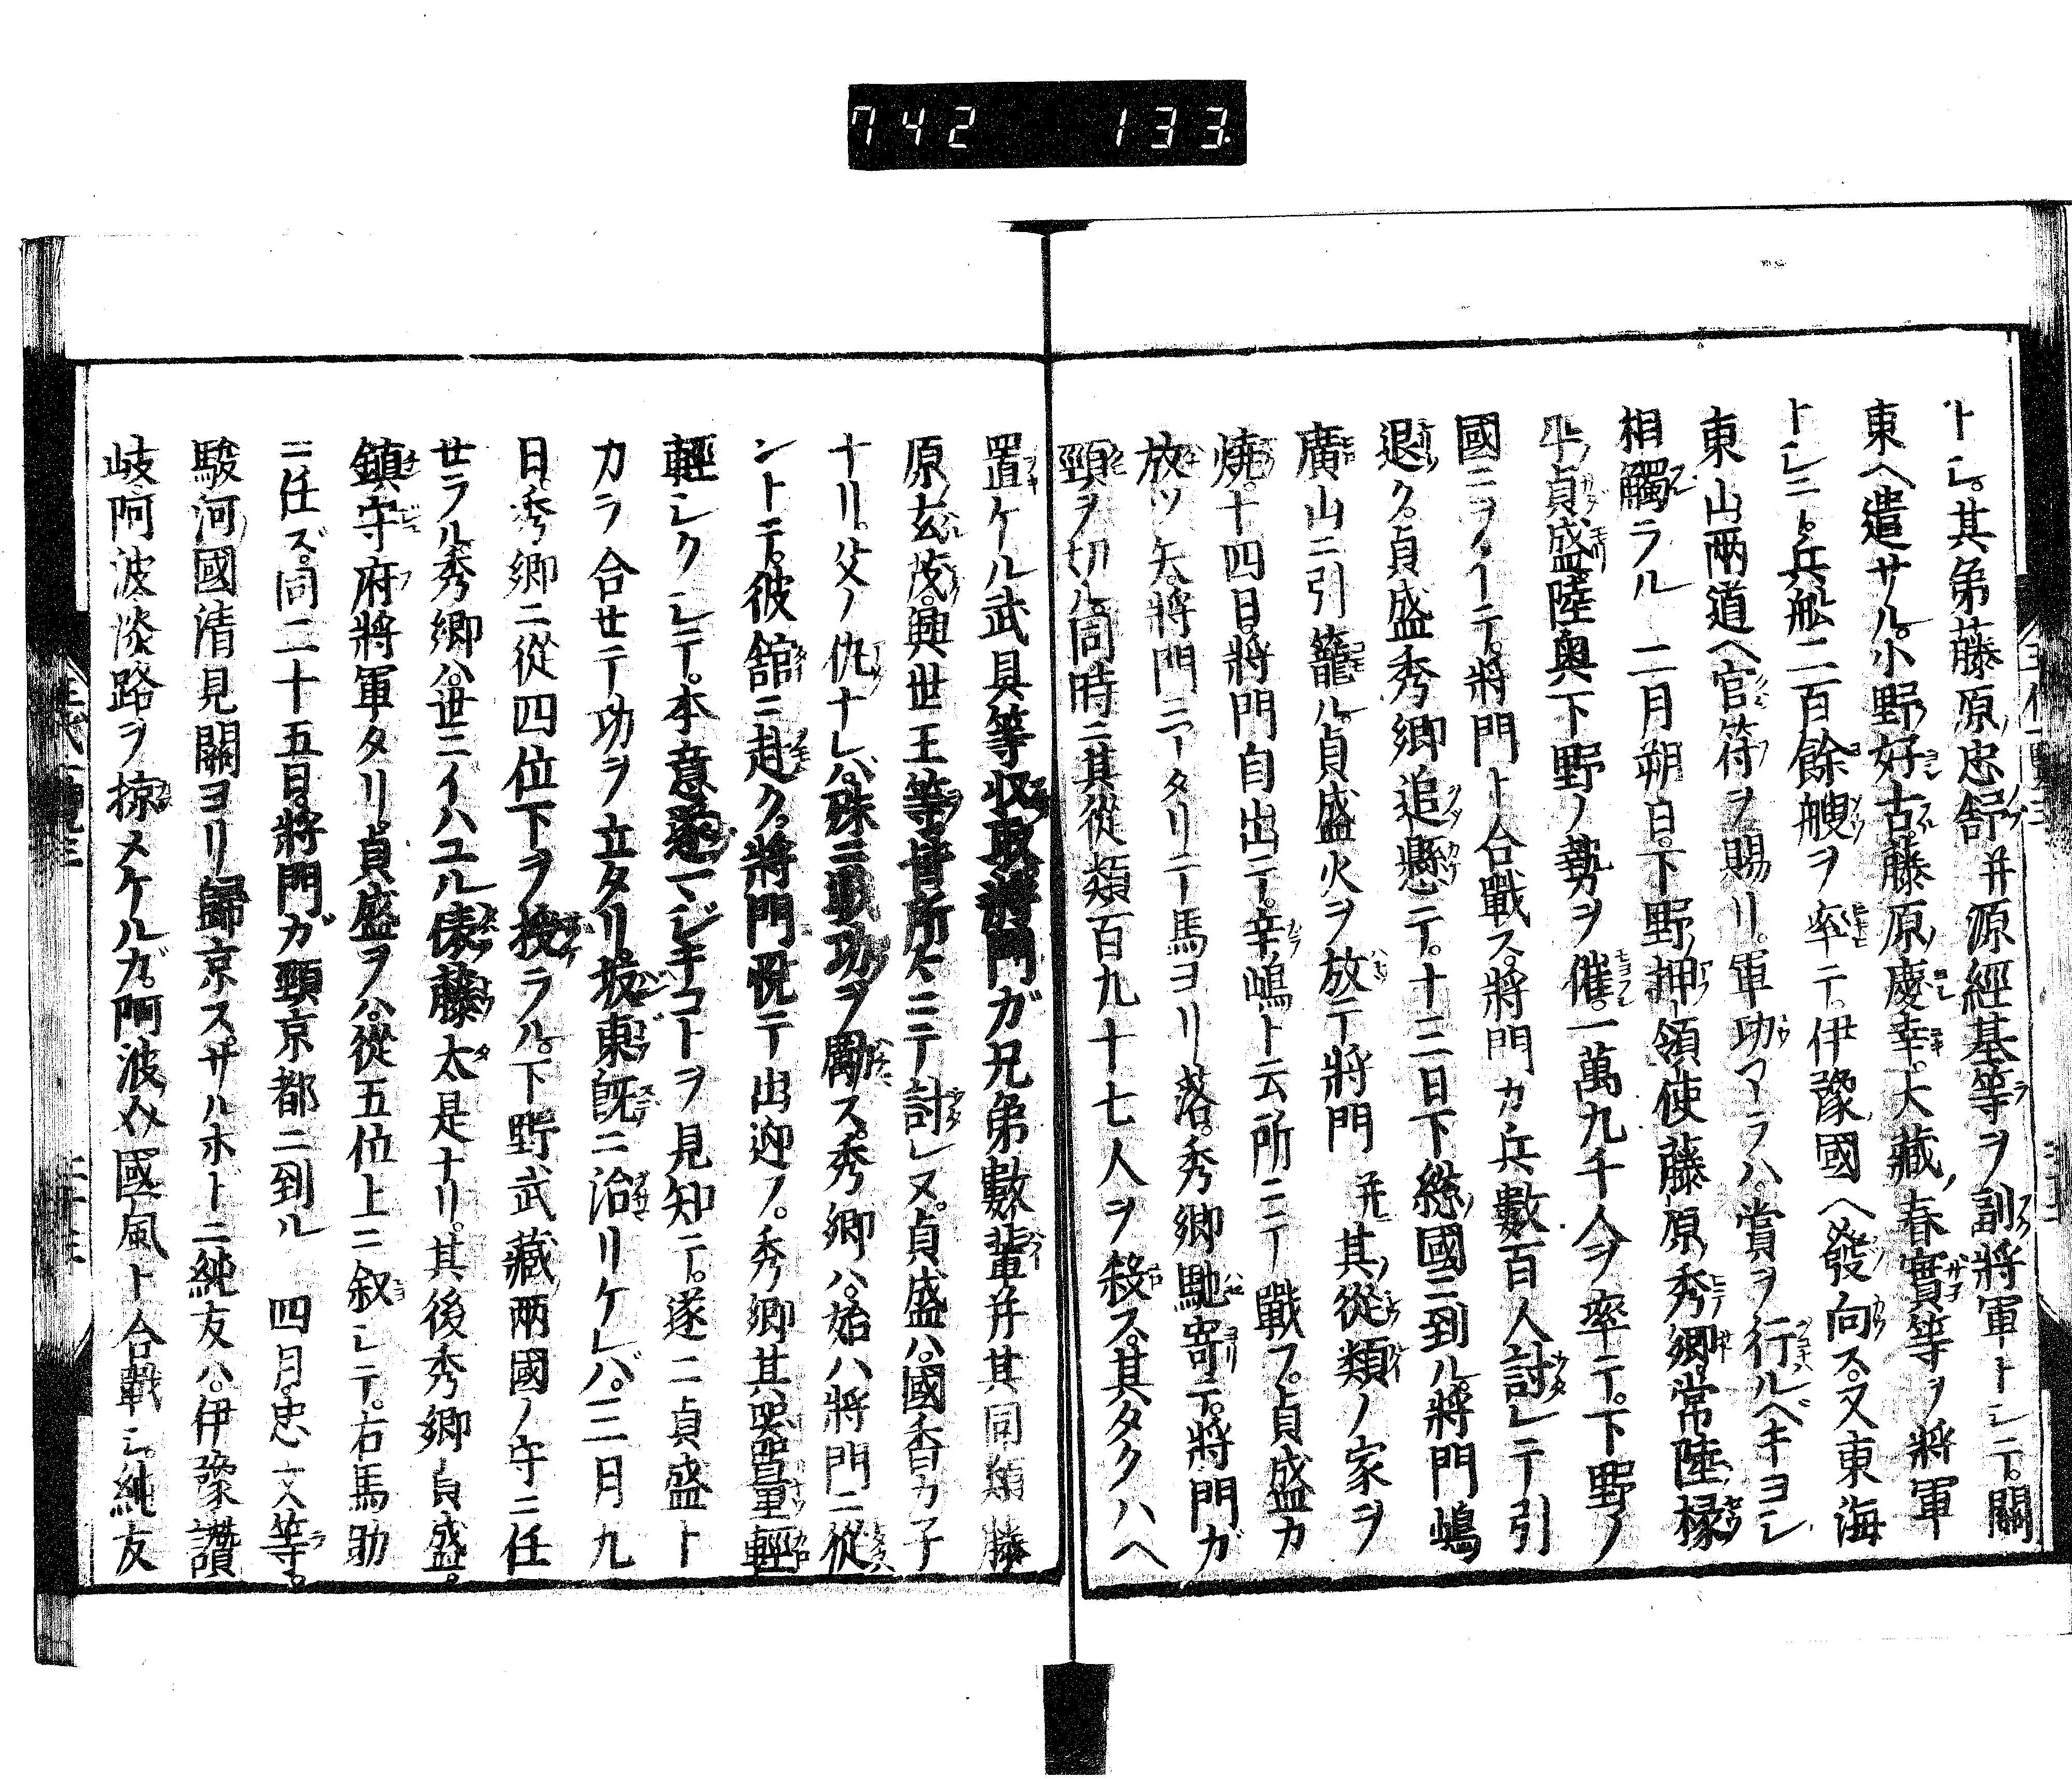 742 133
トシ。其弟藤原忠舒并源經基等ヲ訓將軍トシテ。關
東ヘ遣サル。小野好古。藤原慶幸。大藏春實等ヲ將軍
トシニト。兵舩二百餘艘ヲ率テ。伊豫國ヘ發向ス。又東海
東山兩道ヘ官符ヲ賜リ。軍功アラハ。賞ヲ行ルベキヨシ
相觸ラル 二月朔日。下野押領使藤原秀郷。常陸掾
平貞盛陸奥下野ノ勢ヲ催。一萬九千人ヲ率テ。下野ノ
國ニヲイテ。將門ト合戰ス。將門カ兵數百人討レテ引
退ク。貞盛秀郷追懸テ。十三日下総國ニ到ル。將門嶋
廣山ニ引籠ル。貞盛火ヲ放テ將門 并其從類ノ家ヲ
燒。十四日。將門自出テ。辛嶋ト云所ニテ戰フ。貞盛カ
放ツ矢。將門ニアタリテ馬ヨリ落。秀郷馳寄テ。將門ガ
頸ヲ切ル。同時ニ其從類百九十七人ヲ殺ス。其タクハヘ
置ケル武具等收取。將門ガ兄弟數輩并其同類藤
原玄茂。興世王等。皆所々ニテ討レヌ。貞盛ハ。國香カ子
ナリ。父ノ仇ナレバ。殊ニ戰功ヲ勵ス。秀郷ハ。始ハ將門ニ從
ントテ。彼舘ニ赴ク。將門悦テ出迎フ。秀郷其噐量輕
輕シクシテ。本意遂マジキコトヲ見知テ。遂ニ貞盛ト
カラ合せテ功ヲ立タリ。坂東既ニ治リケレバ。三月九
日。秀郷ニ從四位下ヲ授ラル。下野武藏兩國ノ守ニ任
せラル秀郷ハ。世ニイハユル俵藤太是ナリ。其後秀郷貞盛。
鎮守府將軍タリ。貞盛ヲハ。從五位上ニ叙シテ。右馬助
ニ任ズ。同二十五日。將門ガ頸京都ニ到ル 四月。忠文等。
駿河國清見關ヨリ歸京ス。サルホドニ純友ハ。伊豫讃
岐阿波淡路ヲ掠メケルガ。阿波ノ國風ト合戰シ。純友